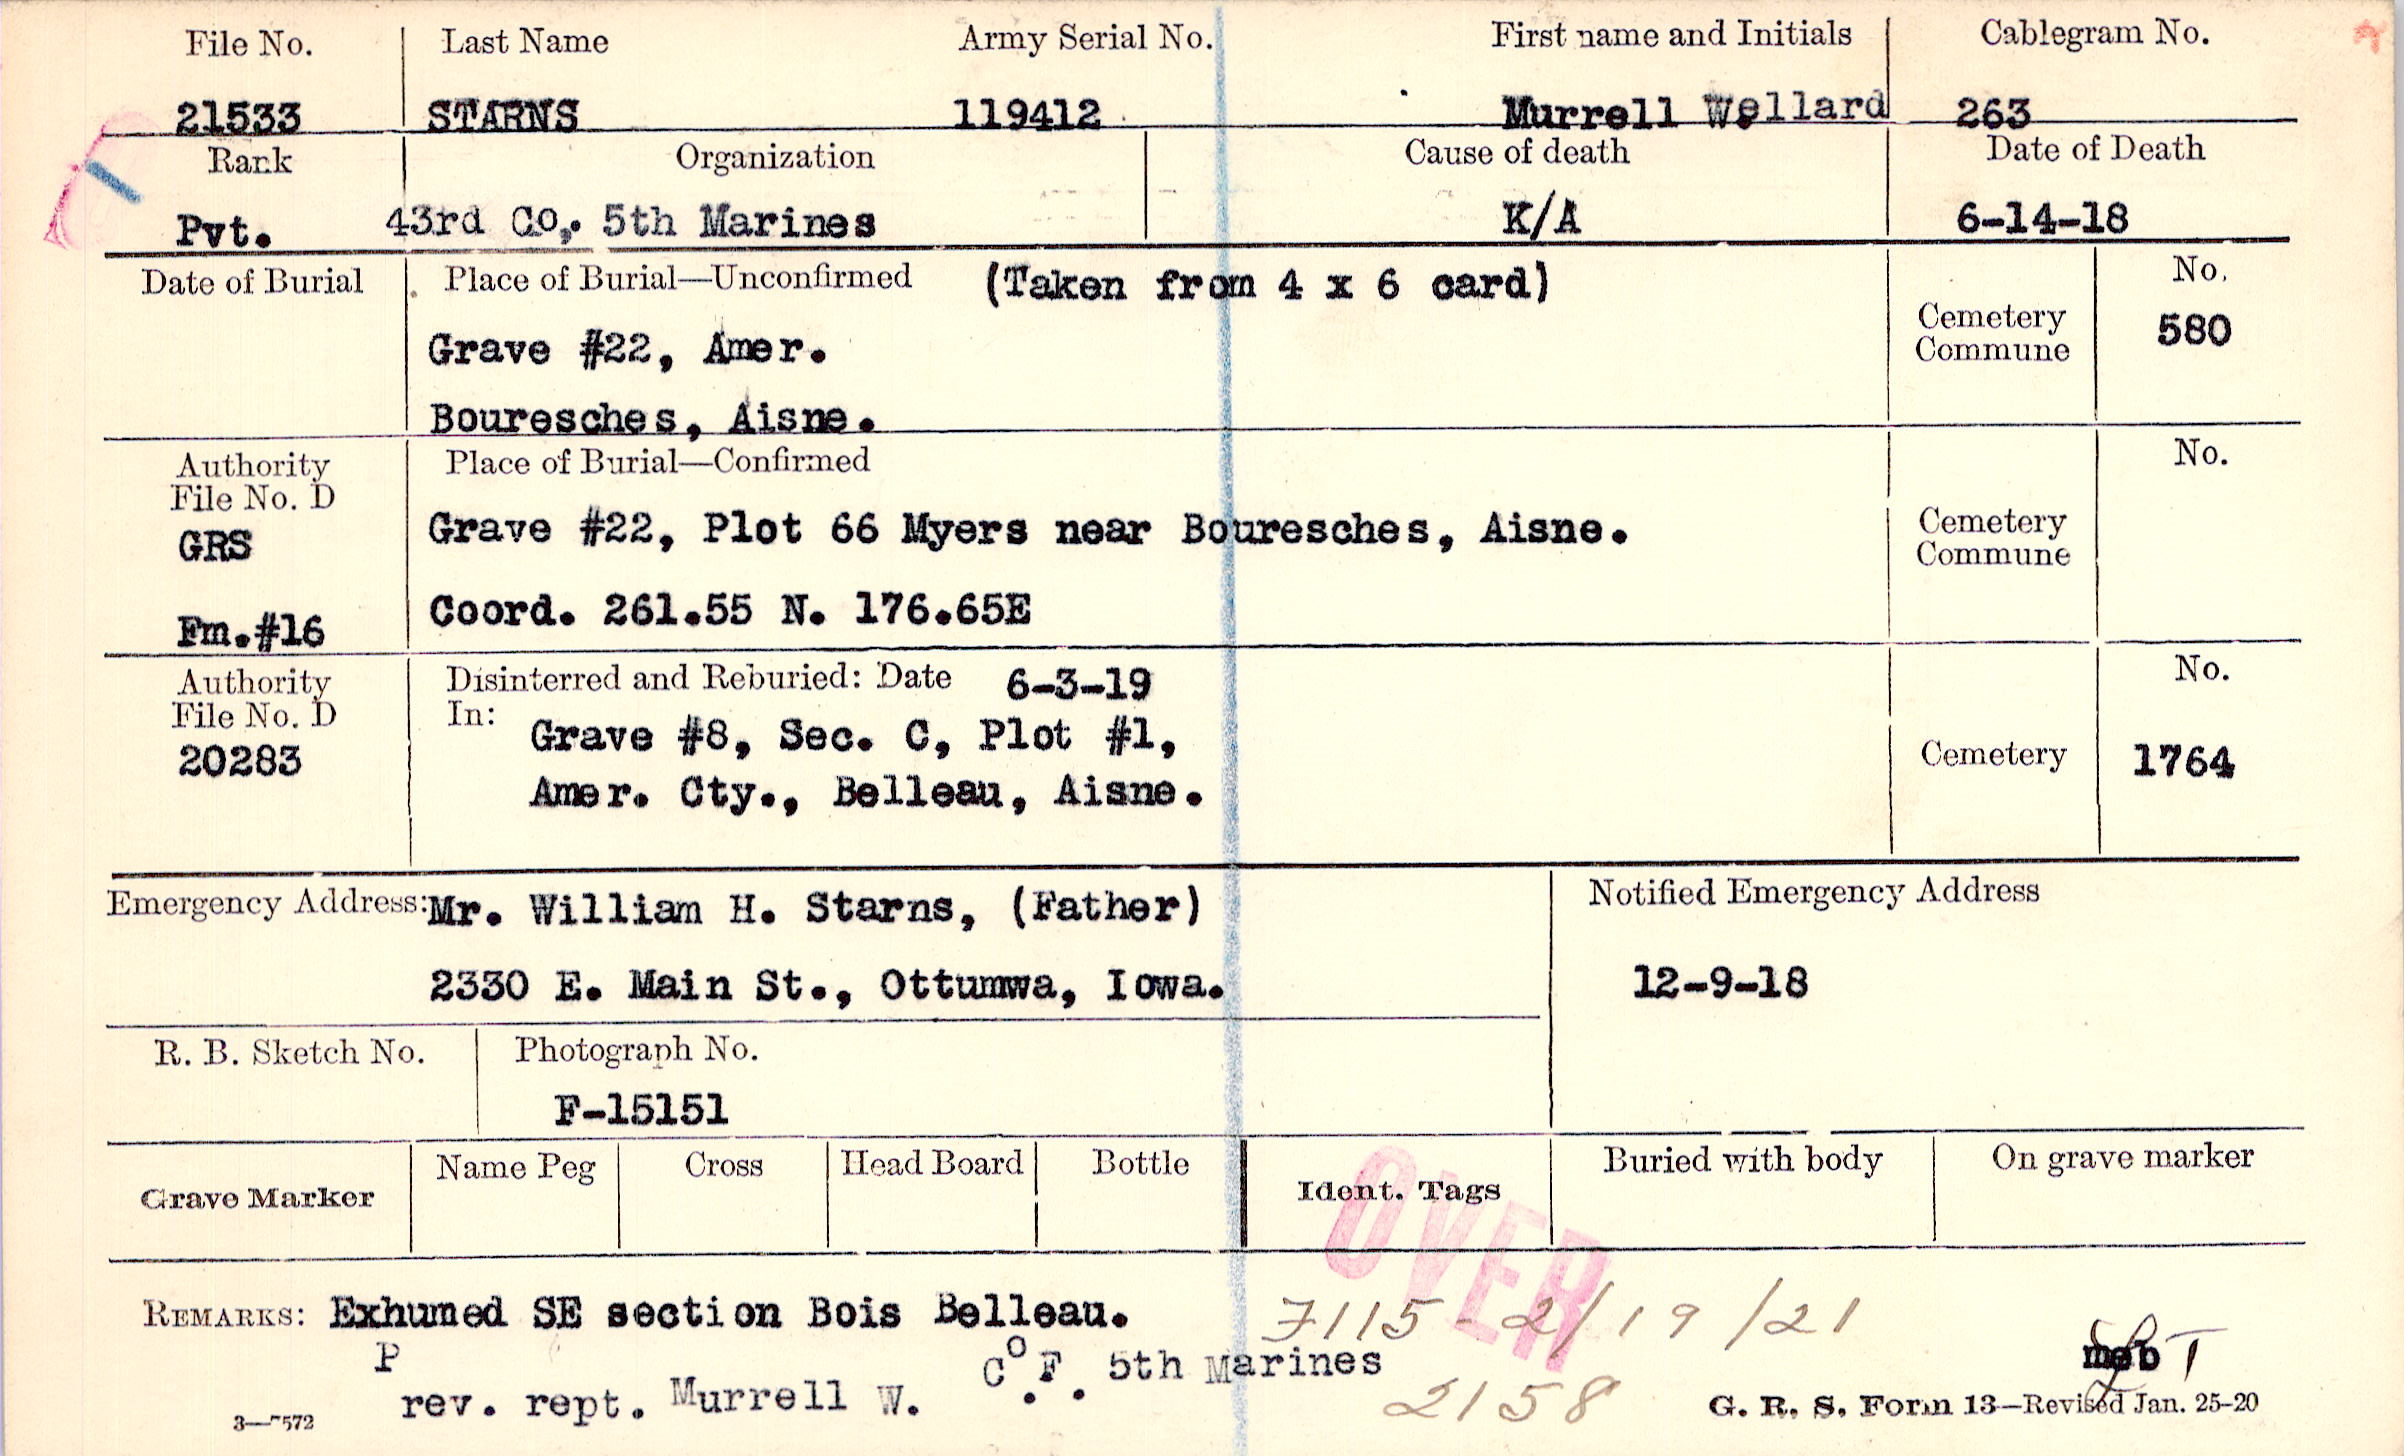 File No. Last Name Army Serial No. First name and Initials Cablegram No.
21533 STARNS 119412 Murrell Wellard 263
Rank Organization Cause of death Date of Death
Pvt. 43rd Co,. 5th Marines K/A 6-14-18
Date of Burial Place of Burial—Unconfirmed (Taken from 4 x 6 card) No.
Grave #22, Amer. Cemetery Commune 580
Bouresches, Aisne.
Authority File No. D Place of Burial—Confirmed No.
GRS Grave #22, Plot 66 Myers near Bouresches, Aisne. Cemetery Commune
Fm.#16 Coord. 261.55 N. 176.65E
Authority File No. D Disinterred and Reburied: Date 6-3-19 No.
20283 In: Grave #8, Sec. C, Plot #1, Cemetery 1764
Amer. Cty., Belleau, Aisne.
Emergency Address: Mr. William H. Starns, (Father) Notified Emergency Address
2330 E. Main St., Ottumwa, Iowa. 12-9-18
R. B. Sketch No. Photograph No.
F-15151
Grave Marker Name Peg Cross Head Board Bottle Ident. Tags Buried with body On grave marker
OVER
REMARKS: Exhumed SE section Bois Belleau. 7115 - 2/19/21
P
rev. rept. Murrell W. Co. F. 5th Marines
2158
3—7572 G. R. S. Form 13—Revised Jan. 25-20